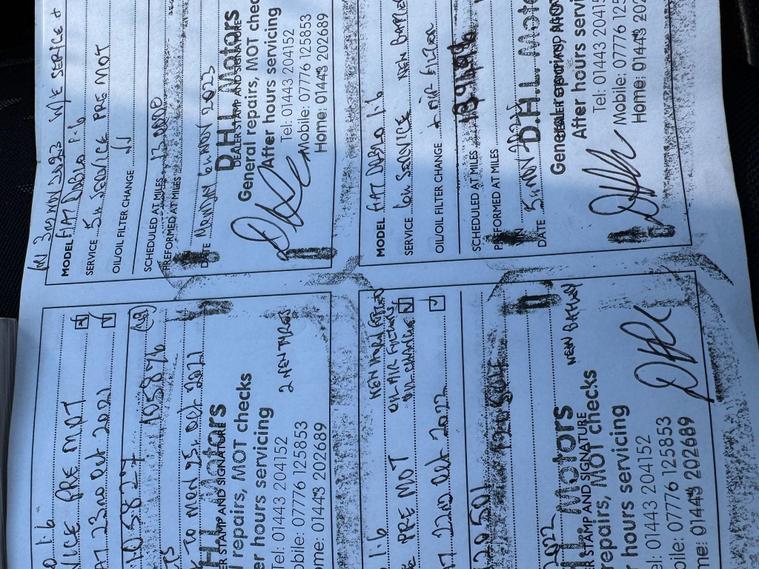 3rd NOV 2023 W/E SERVICE &
MODEL FIAT DOBLO 1.6
SERVICE 5th SERVICE PRE MOT
OIL/OIL FILTER CHANGE
SCHEDULED AT MILES
PREFORMED AT MILES
DATE Monday 6th NOV 2023
D.H.L Motors
DEALER STAMP AND SIGNATURE
General repairs, MOT checks
After hours servicing
Tel: 01443 204152
Mobile: 07776 125853
Home: 01443 202689
MODEL FIAT DOBLO 1.6
SERVICE 6th SERVICE NEW BATTE
OIL/OIL FILTER CHANGE + AIR FILTER
SCHEDULED AT MILES
PREFORMED AT MILES
DATE 5th NOV
D.H.L Moto
After hours servicing
Tel: 01443 2041
Mobile: 07776 125
Home: 01443 202
1.6
VICE PRE MOT
AT 23rd Oct 2021
105827
105876
TO Mon 25th Oct 2021
H.L Motors
ER STAMP AND SIGNATURE
l repairs, MOT checks
2 NEW TYRES
er hours servicing
Tel: 01443 204152
obile: 07776 125853
ome: 01443 202689
1.6
PRE MOT
OIL AIR FILTER
OIL CHANGE
AT 22nd Oct 2022
20501
2022
NEW BATTERY
H.L Motors
ER STAMP AND SIGNATURE
repairs, MOT checks
er hours servicing
el: 01443 204152
bile: 07776 125853
me: 01443 202689